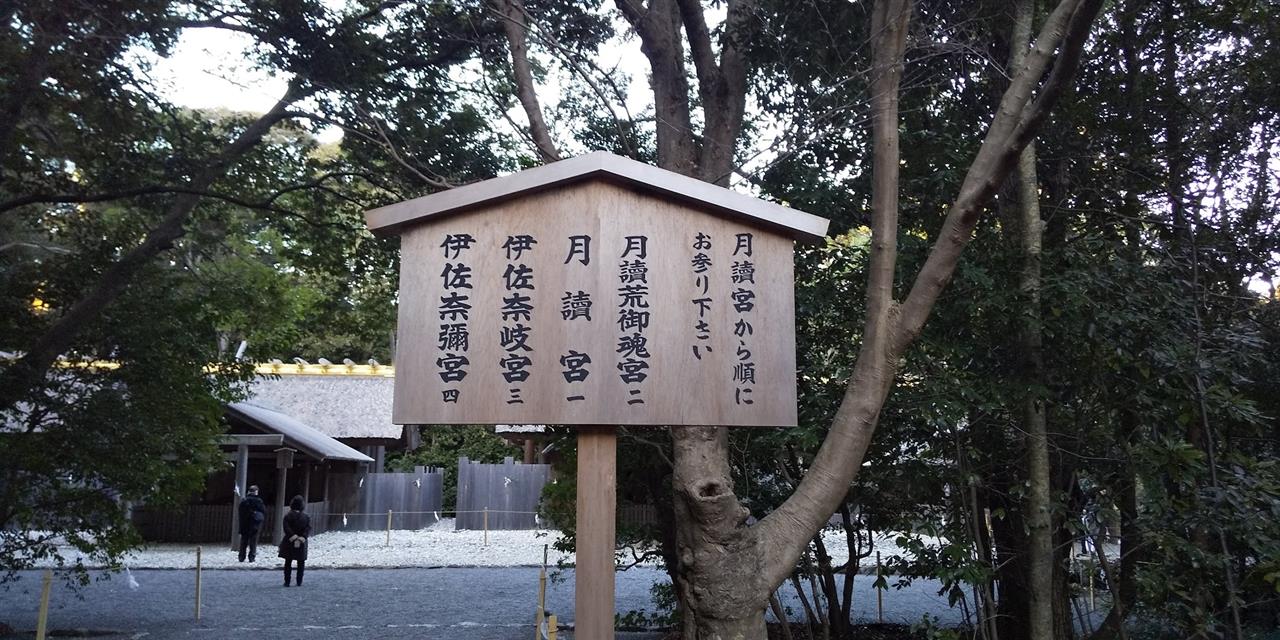 月讀宮から順に
お参り下さい
月讀荒御魂宮二
月讀宮一
伊佐奈岐宮三
伊佐奈彌宮四